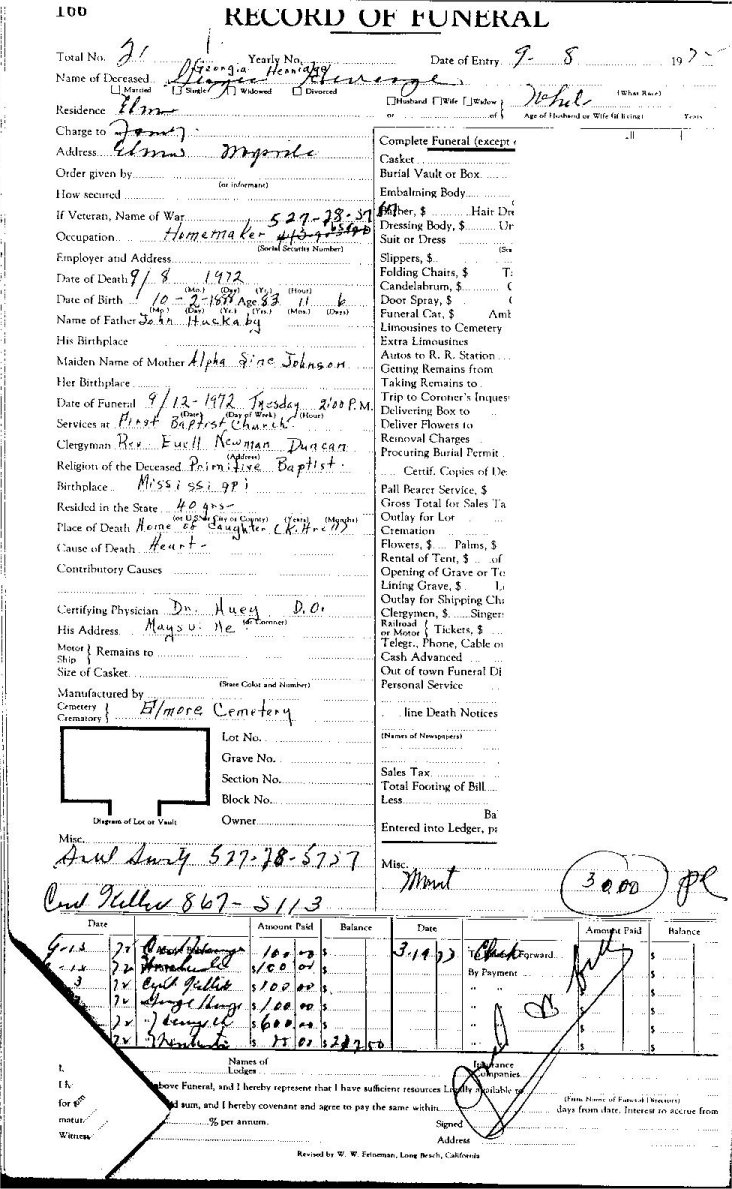 166
RECORD OF FUNERAL
Total No. 21 Yearly No. Date of Entry 9- 8 197
Georgia Hennidge
Name of Deceased
Married Single Widowed Divorced
Husband Wife Widow (What Race)
or of Age of Husband or Wife (if living) Years
Residence Elm
Charge to
Address Elmore
Order given by
(or informant)
How secured
If Veteran, Name of War 527-78-57
Occupation Homemaker
(Social Security Number)
Employer and Address
Date of Death 9/ 8 1972
(Mo.) (Day) (Yr.) (Hour)
Date of Birth 10-2-1888 Age 83 11 6
(Mo.) (Day) (Yr.) (Yrs.) (Mos.) (Days)
Name of Father John Huckaby
His Birthplace
Maiden Name of Mother Alpha Sine Johnson
Her Birthplace
Date of Funeral 9/12-1972 Tuesday 2:00 P.M.
(Date) (Day of Week) (Hour)
Services at First Baptist Church
Clergyman Rev. Euell Newman Duncan
(Address)
Religion of the Deceased Primitive Baptist.
Birthplace Mississippi
Resided in the State 40 yrs-
(or U.S. or City or County) (Years) (Months)
Place of Death Home of daughter
Cause of Death Heart-
Contributory Causes
Certifying Physician Dr. Huey D.O.
(or Coroner)
His Address Maysville
Motor Ship } Remains to
Size of Casket
(State Color and Number)
Manufactured by
Cemetery Crematory } Elmore Cemetery
Lot No.
Grave No.
Section No.
Block No.
Diagram of Lot or Vault Owner
Misc.
527-78-5727
867-5113
Complete Funeral (except
Casket
Burial Vault or Box
Embalming Body
Barber, $ Hair Dre
Dressing Body, $ Un
Suit or Dress
Slippers, $
Folding Chairs, $ T
Candelabrum, $ C
Door Spray, $
Funeral Car, $ Amb
Limousines to Cemetery
Extra Limousines
Autos to R. R. Station
Getting Remains from
Taking Remains to
Trip to Coroner's Inques
Delivering Box to
Deliver Flowers to
Removal Charges
Procuring Burial Permit
Certif. Copies of De
Pall Bearer Service, $
Gross Total for Sales Ta
Outlay for Lot
Cremation
Flowers, $ Palms, $
Rental of Tent, $ of
Opening of Grave or To
Lining Grave, $ Li
Outlay for Shipping Cha
Clergymen, $ Singers
Railroad or Motor { Tickets, $
Telegr., Phone, Cable or
Cash Advanced
Out of town Funeral Di
Personal Service
line Death Notices
(Names of Newspapers)
Sales Tax
Total Footing of Bill
Less
Ba
Entered into Ledger, pa
Misc.
30.00
Date Amount Paid Balance Date Amount Paid Balance
3-19 73 Forward
By Payment
$100 00
$100 00
$100 00
$600 00
Names of Lodges
Insurance Companies
bove Funeral, and I hereby represent that I have sufficient resources Legally available to
(Firm Name of Funeral Directors)
d sum, and I hereby covenant and agree to pay the same within days from date. Interest to accrue from
matur
% per annum.
Signed
Witness
Address
Revised by W. W. Feineman, Long Beach, California